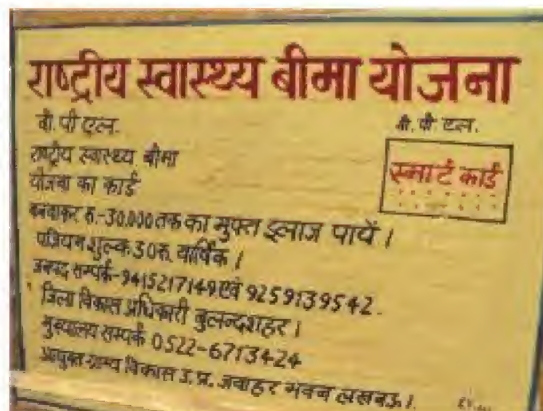 राष्ट्रीय स्वास्थ्य बीमा योजना
बी. पी एल.
बी. पी एल.
राष्ट्रीय स्वास्थ्य बीमा
योजना का कार्ड
स्मार्ट कार्ड
बनवाकर रु.-30,000 तक का मुफ्त इलाज पायें।
पंजियन शुल्क 30 रु. वार्षिक।
जनपद सम्पर्क-9415217149 एवं 9259139542.
जिला विकास अधिकारी बुलन्दशहर।
मुख्यालय सम्पर्क 0522-6713424
आयुक्त ग्राम्य विकास उ.प्र. जवाहर भवन लखनऊ।